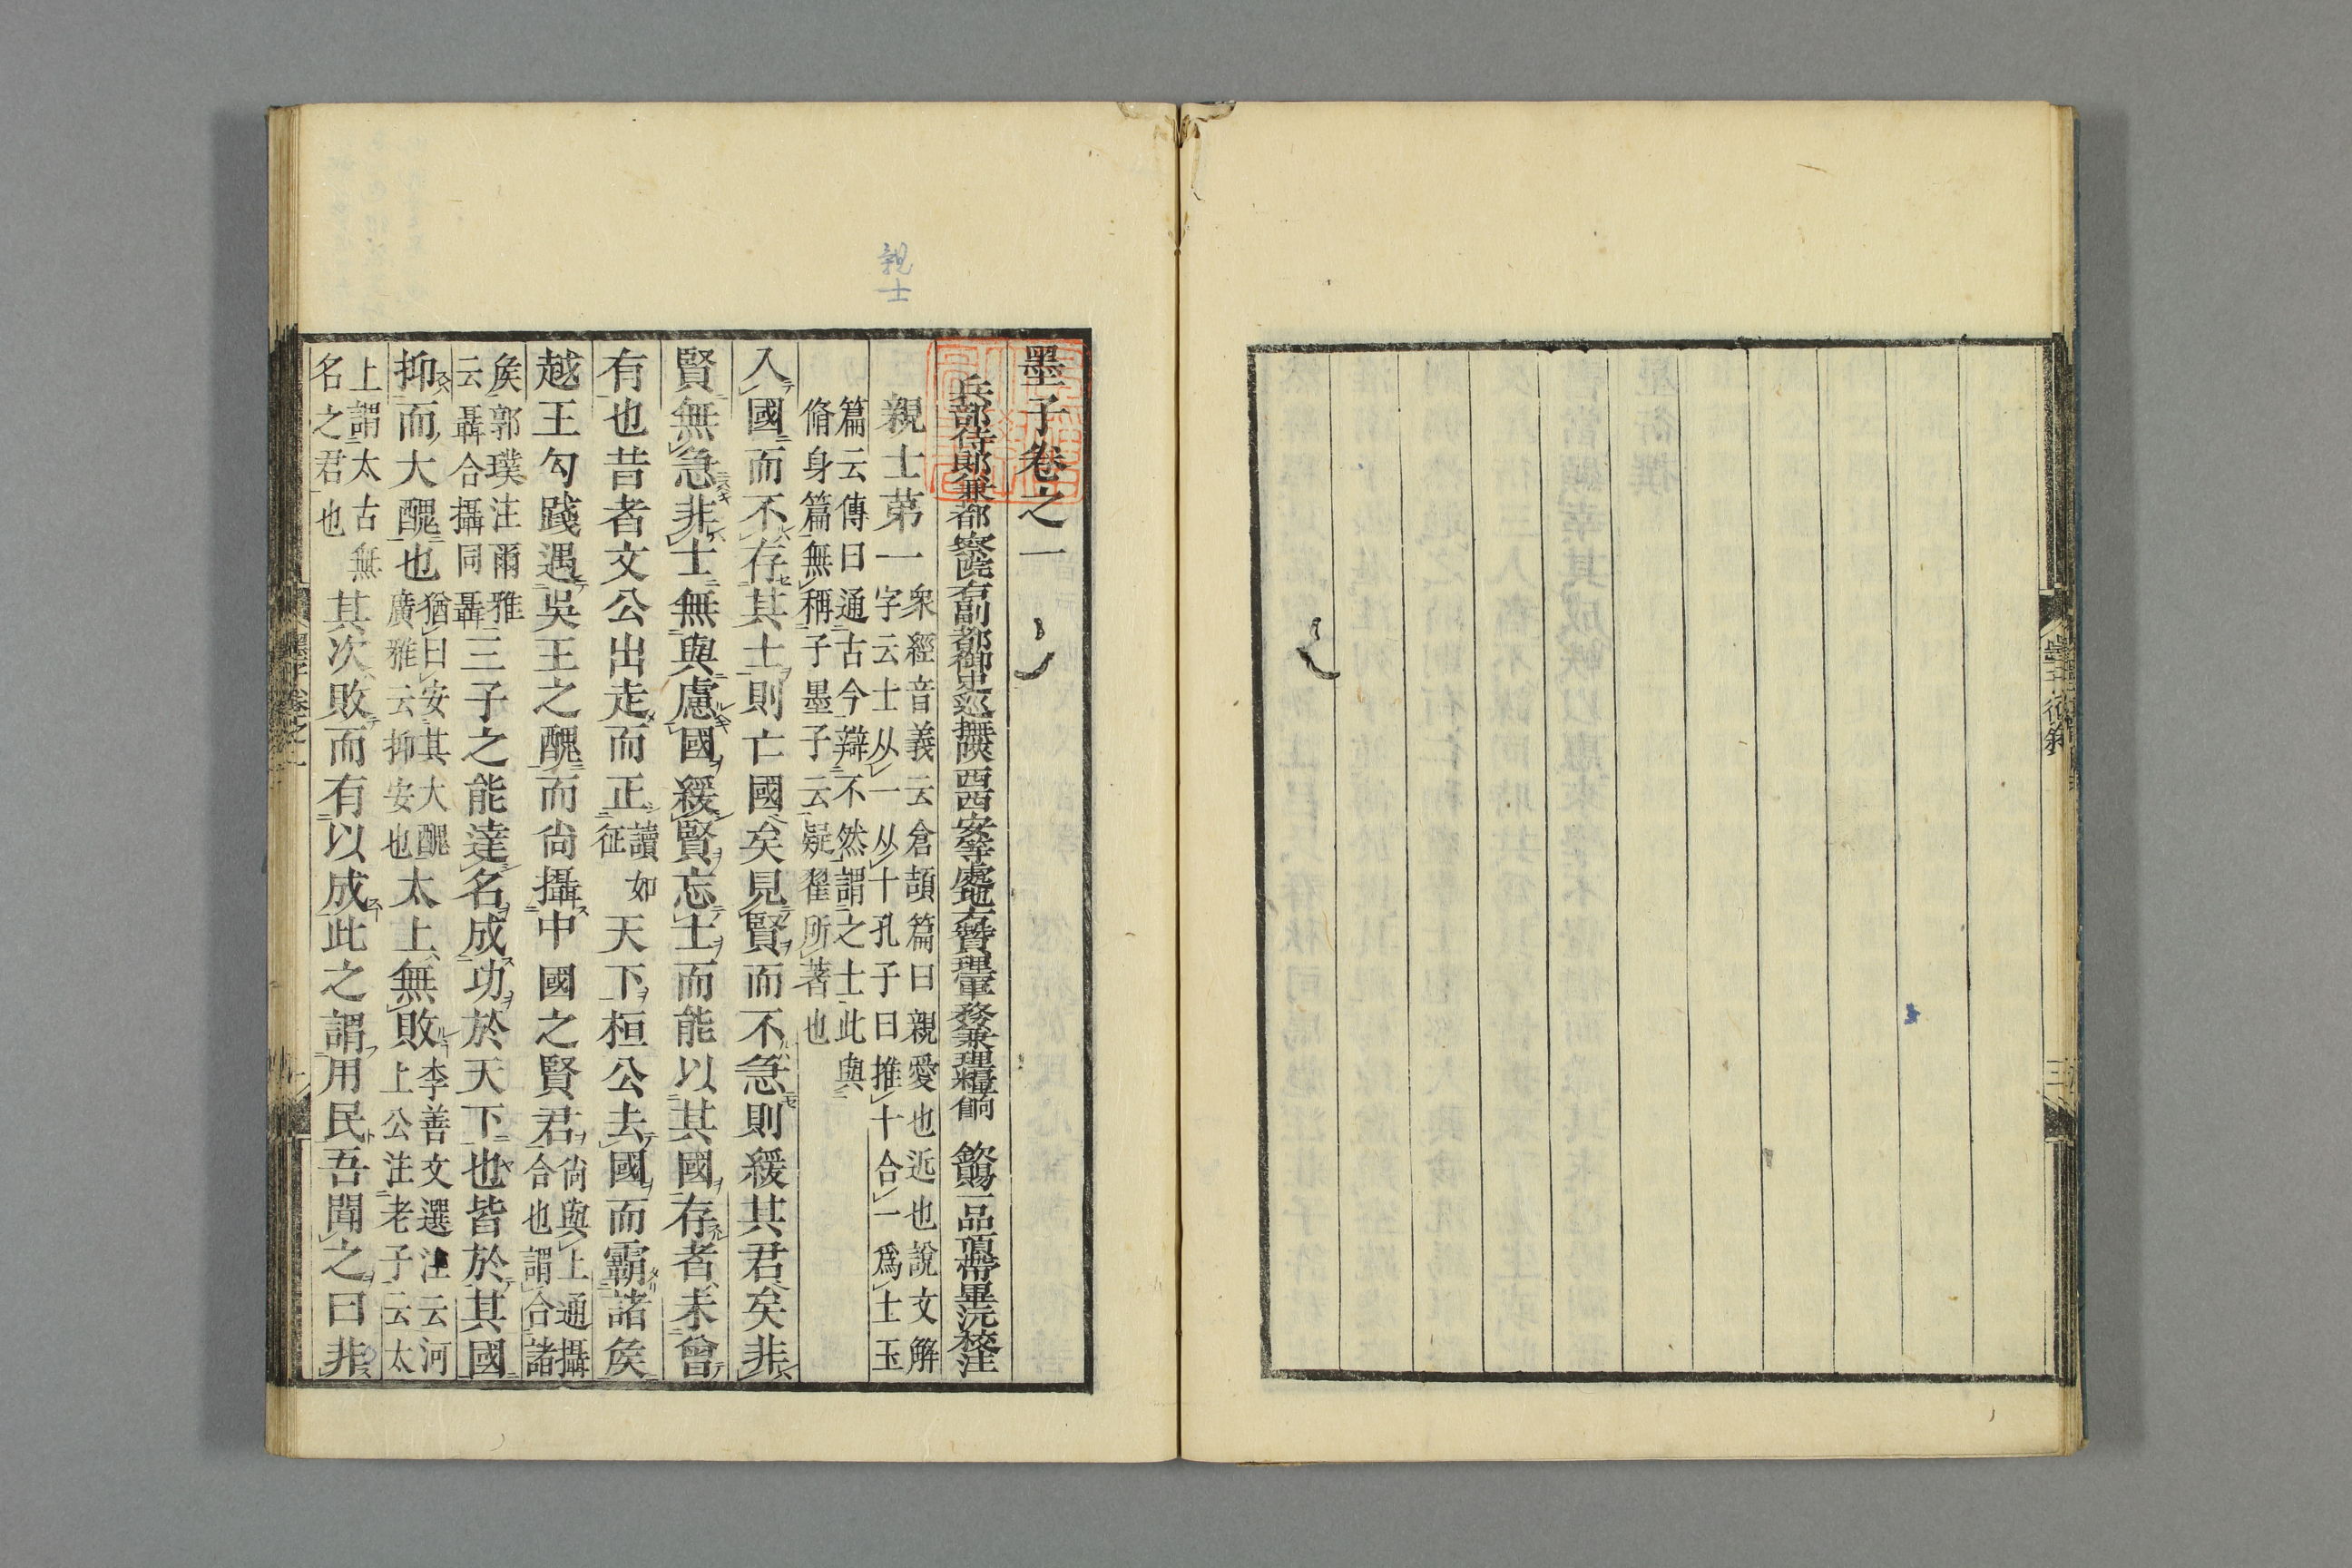 墨子卷之一
兵部侍郎兼都察院右副都御史巡撫陝西西安等處地方贊理軍務兼理糧餉 欽賜一品頂帶畢沅校注
親士
親士第一
衆經音義云倉頡篇曰親愛也近也說文解
字云士从一从十孔子曰推十合一爲士玉
篇云傳曰通古今辯不然謂之士此與
脩身篇無稱子墨子云疑翟所著也
入國而不存其士則亡國矣見賢而不急則緩其君矣非
賢無急非士無與慮國緩賢忘士而能以其國存者未曾
有也昔者文公出走而正
讀如
征
天下桓公去國而霸諸矦
越王勾踐遇吳王之醜而尙攝中國之賢君
尙與上通攝
合也謂合諸
矦郭璞注爾雅
云聶合攝同聶
三子之能達名成功於天下也皆於其國
抑而大醜也
猶曰安其大醜
廣雅云抑安也
太上無敗
李善文選注云河
上公注老子云太
上謂太古無
名之君也
其次敗而有以成此之謂用民吾聞之曰非
墨子卷之一